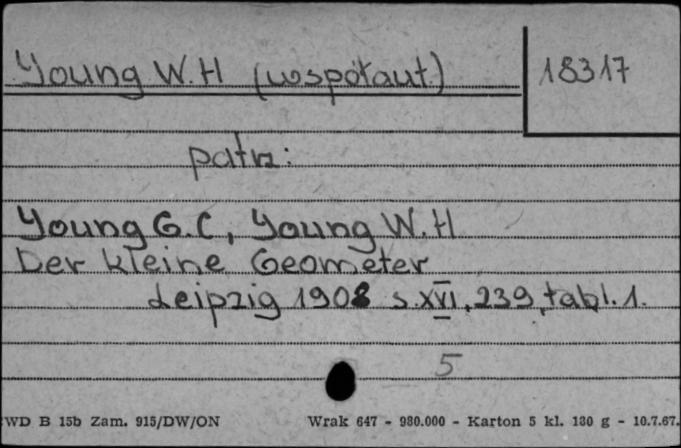 Young W.H (współaut.)
18317
patrz:
Young G.C, Young W.H
Der kleine Geometer
Leipzig 1908 s. XVI, 239, tabl. 1.
5
WD B 15b Zam. 915/DW/ON Wrak 647 - 980.000 - Karton 5 kl. 180 g - 10.7.67.